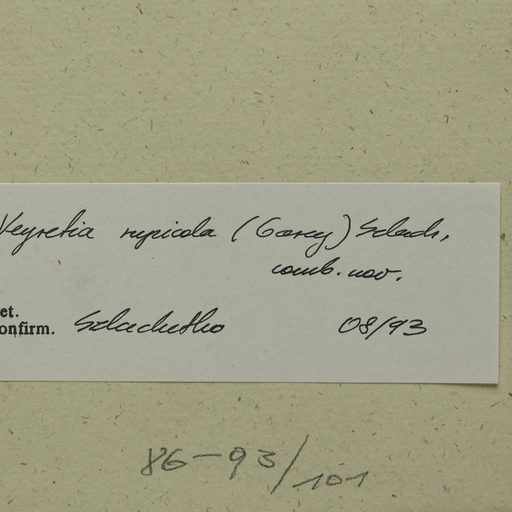 Veyretia rupicola (Garay) Szlach.,
comb. nov.
et.
onfirm. Szlachetko 08/93
86-93/101